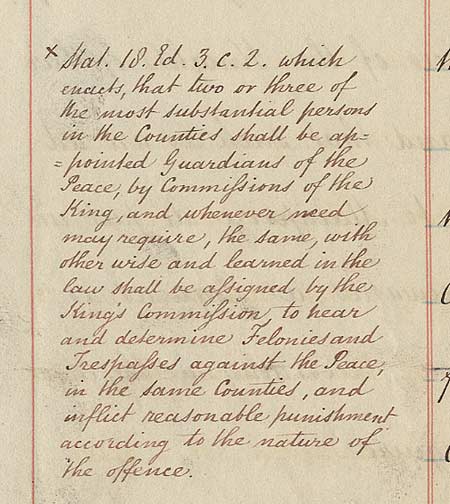 × Stat. 18. Ed. 3. c. 2. which
enacts, that two or three of
the most substantial persons
in the Counties shall be ap=
=pointed Guardians of the
Peace, by Commiſsions of the
King, and whenever need
may require, the same, with
other wise and learned in the
law shall be aſsigned by the
King's Commiſsion, to hear
and determine Felonies and
Trespaſses against the Peace,
in the same Counties, and
inflict reasonable punishment
according to the nature of
the offence.